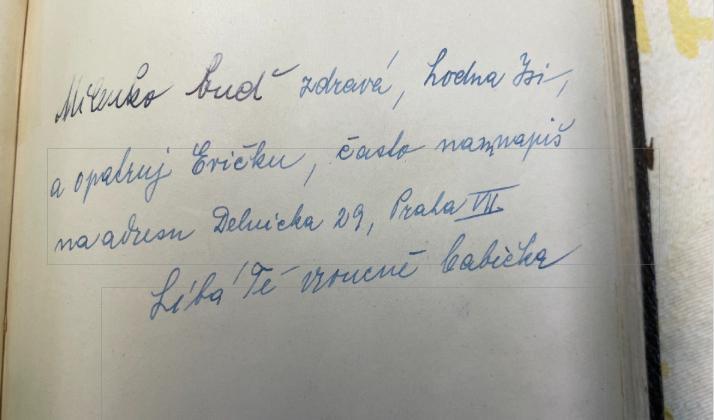 Milenko buď zdravá, hodna jsi,
a opatruj Evičku, často nam napiš
na adresu Delnicka 29, Praha VII
Líbá Tě vroucně babička